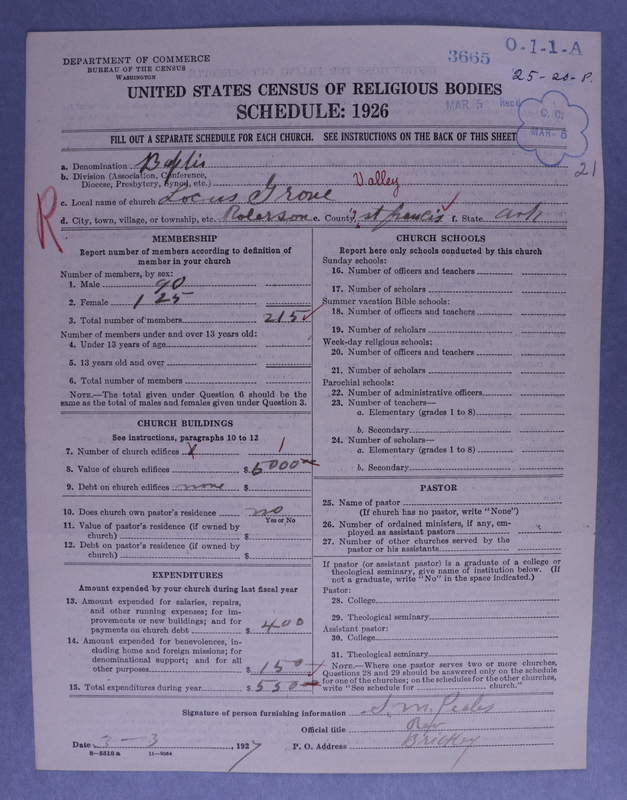 DEPARTMENT OF COMMERCE
BUREAU OF THE CENSUS
WASHINGTON
3665
O-1-1-A
25-20-P.
UNITED STATES CENSUS OF RELIGIOUS BODIES
SCHEDULE: 1926
MAR 5 Rec'd
C. C.
MAR 5
21
FILL OUT A SEPARATE SCHEDULE FOR EACH CHURCH. SEE INSTRUCTIONS ON THE BACK OF THIS SHEET
R
a. Denomination Baptis
b. Division (Association, Conference, Diocese, Presbytery, Synod, etc.) Valley
c. Local name of church Locus Grove
d. City, town, village, or township, etc. Roberson e. County St Francis f. State Ark
MEMBERSHIP
Report number of members according to definition of
member in your church
Number of members, by sex:
1. Male 90
2. Female 125
3. Total number of members 215
Number of members under and over 13 years old:
4. Under 13 years of age
5. 13 years old and over
6. Total number of members
NOTE.—The total given under Question 6 should be the
same as the total of males and females given under Question 3.
CHURCH BUILDINGS
See instructions, paragraphs 10 to 12
7. Number of church edifices 1
8. Value of church edifices $ 6000
9. Debt on church edifices none $
10. Does church own pastor's residence no
Yes or No
11. Value of pastor's residence (if owned by
church) $
12. Debt on pastor's residence (if owned by
church) $
EXPENDITURES
Amount expended by your church during last fiscal year
13. Amount expended for salaries, repairs,
and other running expenses; for im-
provements or new buildings; and for
payments on church debt $ 400
14. Amount expended for benevolences, in-
cluding home and foreign missions; for
denominational support; and for all
other purposes $ 150
15. Total expenditures during year $ 550
CHURCH SCHOOLS
Report here only schools conducted by this church
Sunday schools:
16. Number of officers and teachers
17. Number of scholars
Summer vacation Bible schools:
18. Number of officers and teachers
19. Number of scholars
Week-day religious schools:
20. Number of officers and teachers
21. Number of scholars
Parochial schools:
22. Number of administrative officers
23. Number of teachers—
a. Elementary (grades 1 to 8)
b. Secondary
24. Number of scholars—
a. Elementary (grades 1 to 8)
b. Secondary
PASTOR
25. Name of pastor
(If church has no pastor, write "None")
26. Number of ordained ministers, if any, em-
ployed as assistant pastors
27. Number of other churches served by the
pastor or his assistants
If pastor (or assistant pastor) is a graduate of a college or
theological seminary, give name of institution below. (If
not a graduate, write "No" in the space indicated.)
Pastor:
28. College
29. Theological seminary
Assistant pastor:
30. College
31. Theological seminary
NOTE.—Where one pastor serves two or more churches,
Questions 28 and 29 should be answered only on the schedule
for one of the churches; on the schedules for the other churches,
write "See schedule for church."
Signature of person furnishing information S. M. Peales
Official title Rev
Date 3-3, 1927 P. O. Address Brickey
8-5518 a 11-9064